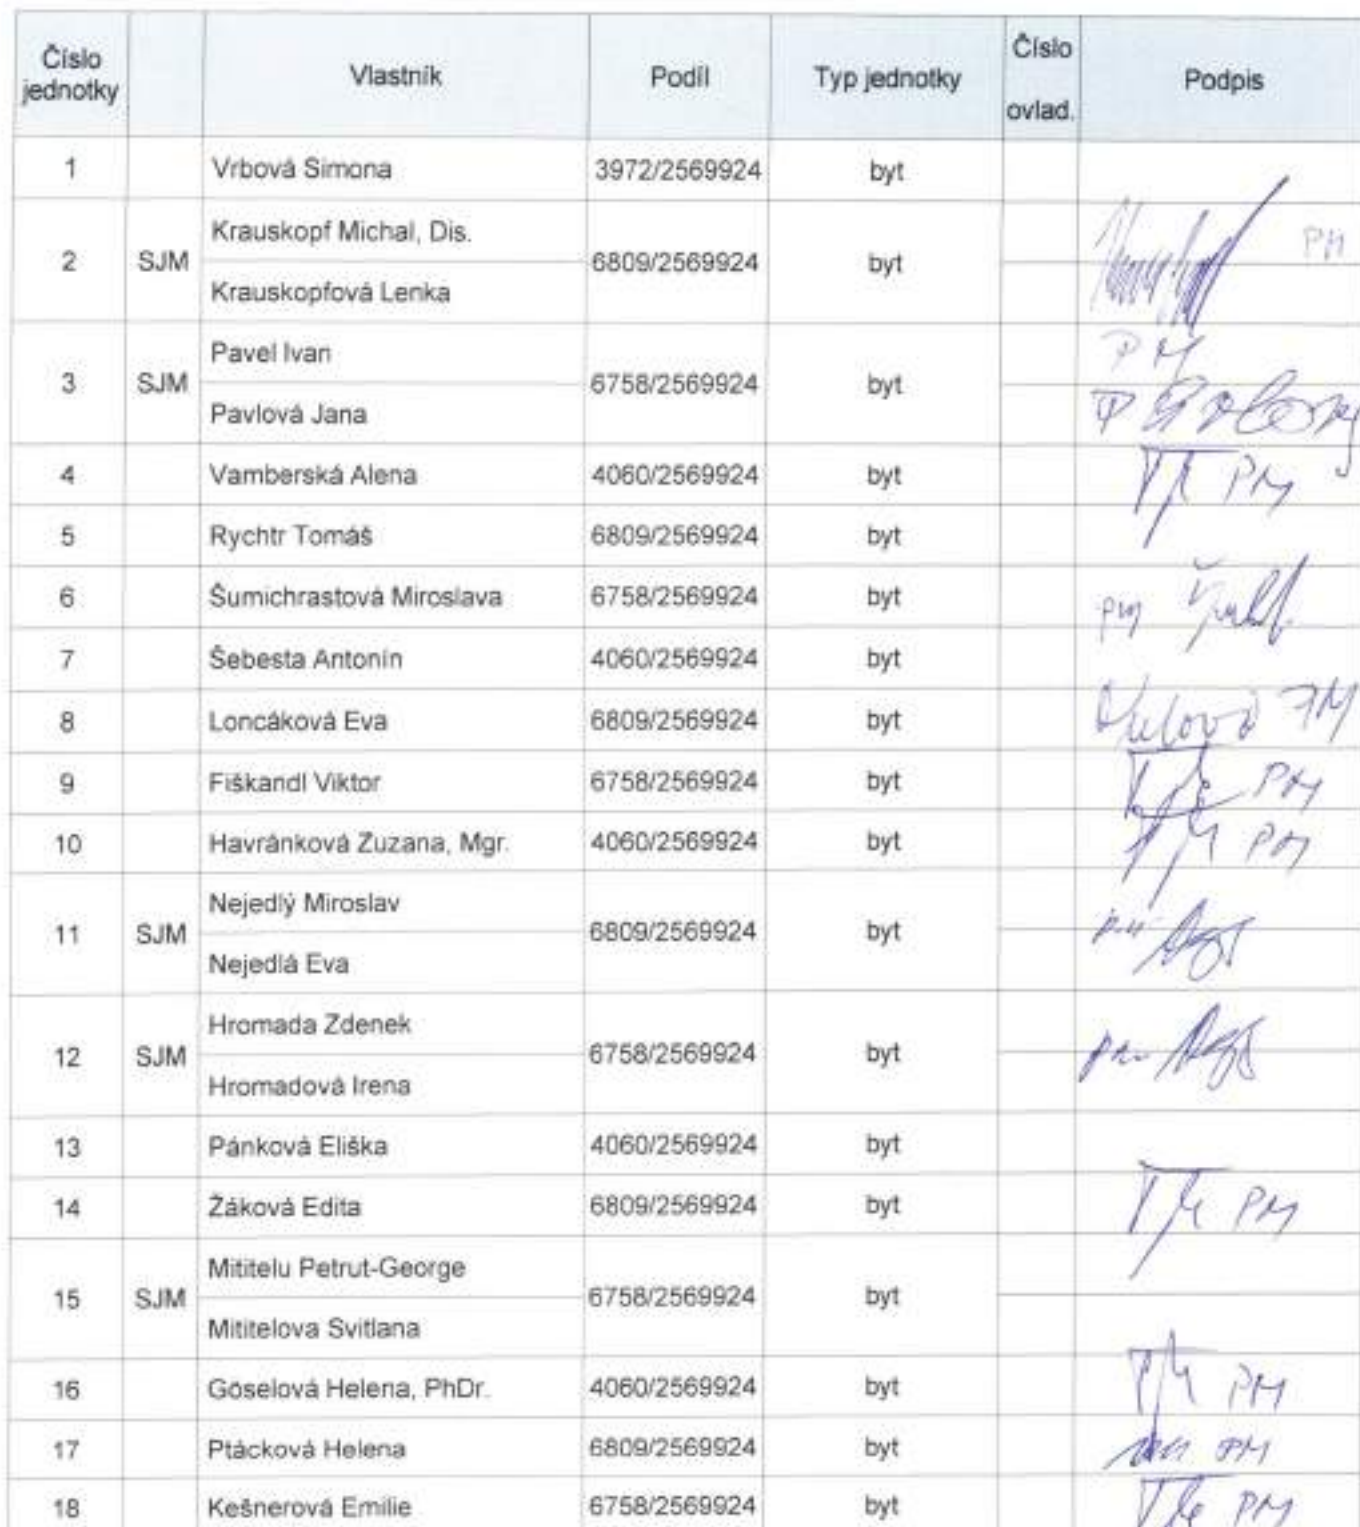 Číslo jednotky Vlastník Podíl Typ jednotky Číslo ovlad. Podpis
1 Vrbová Simona 3972/2569924 byt
2 SJM Krauskopf Michal, Dis. 6809/2569924 byt PM
Krauskopfová Lenka
3 SJM Pavel Ivan 6758/2569924 byt PM
Pavlová Jana
4 Vamberská Alena 4060/2569924 byt PM
5 Rychtr Tomáš 6809/2569924 byt
6 Šumichrastová Miroslava 6758/2569924 byt PM
7 Šebesta Antonín 4060/2569924 byt
8 Loncáková Eva 6809/2569924 byt PM
9 Fiškandl Viktor 6758/2569924 byt PM
10 Havránková Zuzana, Mgr. 4060/2569924 byt PM
11 SJM Nejedlý Miroslav 6809/2569924 byt
Nejedlá Eva
12 SJM Hromada Zdenek 6758/2569924 byt
Hromadová Irena
13 Pánková Eliška 4060/2569924 byt
14 Žáková Edita 6809/2569924 byt PM
15 SJM Mititelu Petrut-George 6758/2569924 byt
Mititelova Svitlana
16 Göselová Helena, PhDr. 4060/2569924 byt PM
17 Ptácková Helena 6809/2569924 byt PM
18 Kešnerová Emilie 6758/2569924 byt PM